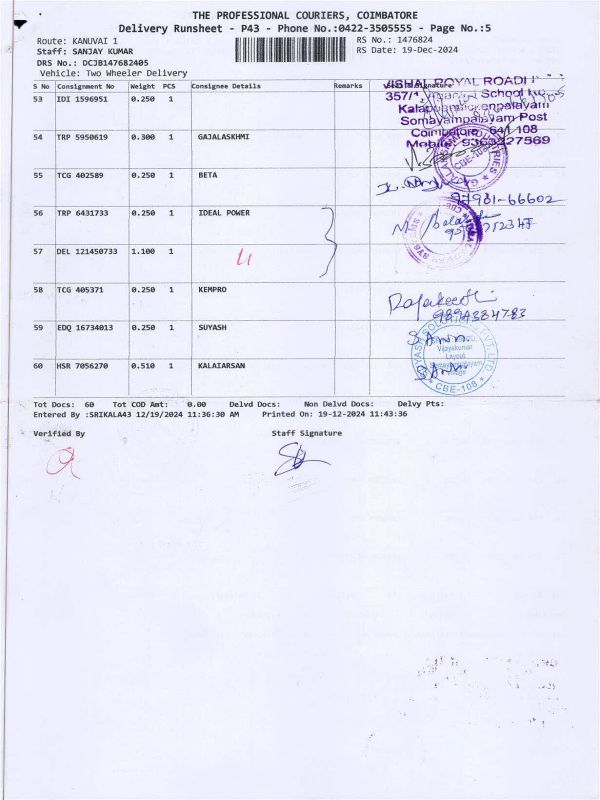 THE PROFESSIONAL COURIERS, COIMBATORE
Delivery Runsheet - P43 - Phone No.:0422-3505555 - Page No.:5
Route: KANUVAI 1 RS No.: 1476824
Staff: SANJAY KUMAR RS Date: 19-Dec-2024
DRS No.: DCJB147682405
Vehicle: Two Wheeler Delivery
S No Consignment No Weight PCS Consignee Details Remarks Signature
53 IDI 1596951 0.250 1
VISHAL ROYAL ROADI
357/1, School
Somayampalayam Post
Coimbatore 641 108
54 TRP 5950619 0.300 1 GAJALASKHMI
55 TCG 402589 0.250 1 BETA
97981-66602
56 TRP 6431733 0.250 1 IDEAL POWER
57 DEL 121450733 1.100 1
58 TCG 405371 0.250 1 KEMPRO
9894384783
59 EDQ 16734013 0.250 1 SUYASH
Vijayakumar
Layout
60 HSR 7056270 0.510 1 KALAIARSAN
CBE-108
Tot Docs: 60 Tot COD Amt: 0.00 Delvd Docs: Non Delvd Docs: Delvy Pts:
Entered By :SRIKALA43 12/19/2024 11:36:30 AM Printed On: 19-12-2024 11:43:36
Verified By Staff Signature